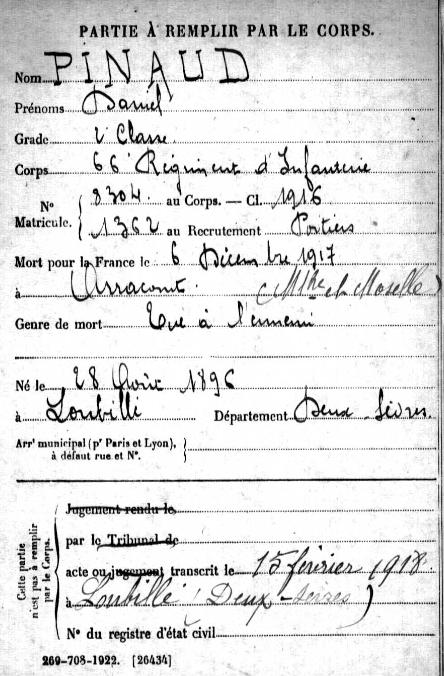 PARTIE À REMPLIR PAR LE CORPS.
Nom PINAUD
Prénoms Daniel
Grade 2e Classe
Corps 66 Régiment d'Infanterie
N° Matricule. { 8304. au Corps. — Cl. 1916
1362 au Recrutement Poitiers
Mort pour la France le 6 Décembre 1917
à Arracourt. (Mthe et Moselle)
Genre de mort Tué à l'ennemi
Né le 28 Août 1896
à Loubillé Département Deux-Sèvres.
Arrt municipal (pr Paris et Lyon),
à défaut rue et N°. }
Cette partie n'est pas à remplir par le Corps.
Jugement rendu le
par le Tribunal de
acte ou jugement transcrit le 15 février 1918
à Loubillé (Deux-Sèvres)
N° du registre d'état civil
269-708-1922. [26434]